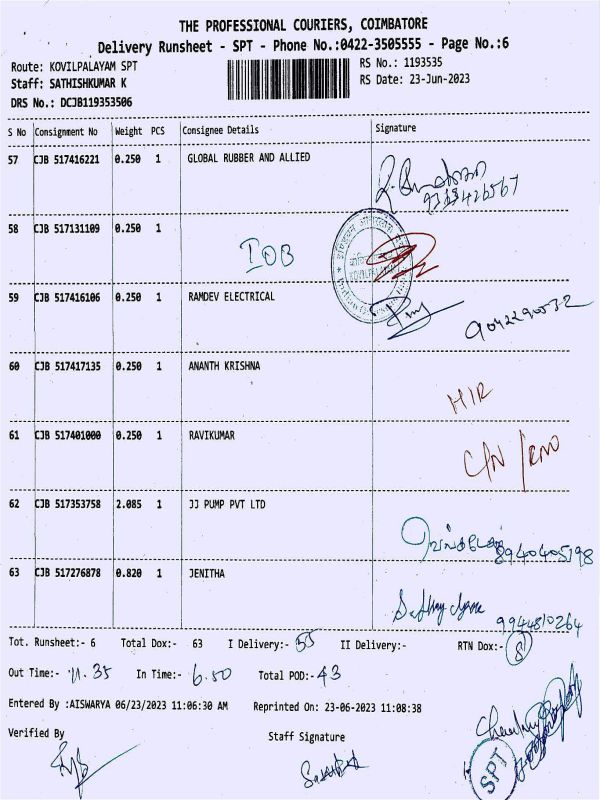 THE PROFESSIONAL COURIERS, COIMBATORE
Delivery Runsheet - SPT - Phone No.:0422-3505555 - Page No.:6
Route: KOVILPALAYAM SPT
RS No.: 1193535
Staff: SATHISHKUMAR K
RS Date: 23-Jun-2023
DRS No.: DCJB119353506
S No Consignment No Weight PCS Consignee Details Signature
57 CJB 517416221 0.250 1 GLOBAL RUBBER AND ALLIED
58 CJB 517131109 0.250 1 IOB
59 CJB 517416106 0.250 1 RAMDEV ELECTRICAL
60 CJB 517417135 0.250 1 ANANTH KRISHNA H/R
61 CJB 517401000 0.250 1 RAVIKUMAR C/N / RNO
62 CJB 517353758 2.085 1 JJ PUMP PVT LTD 8940405198
63 CJB 517276878 0.820 1 JENITHA 9944810264
Tot. Runsheet:- 6 Total Dox:- 63 I Delivery:- 55 II Delivery:- RTN Dox:- 8
Out Time:- 11.35 In Time:- 6.50 Total POD:- 43
Entered By :AISWARYA 06/23/2023 11:06:30 AM Reprinted On: 23-06-2023 11:08:38
Verified By Staff Signature
SPT